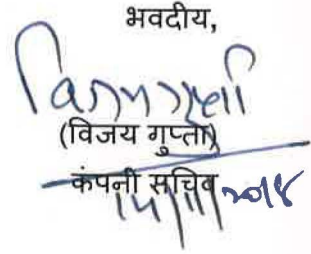 भवदीय,
विजय गुप्ता
(विजय गुप्ता)
कंपनी सचिव
14/11/2018